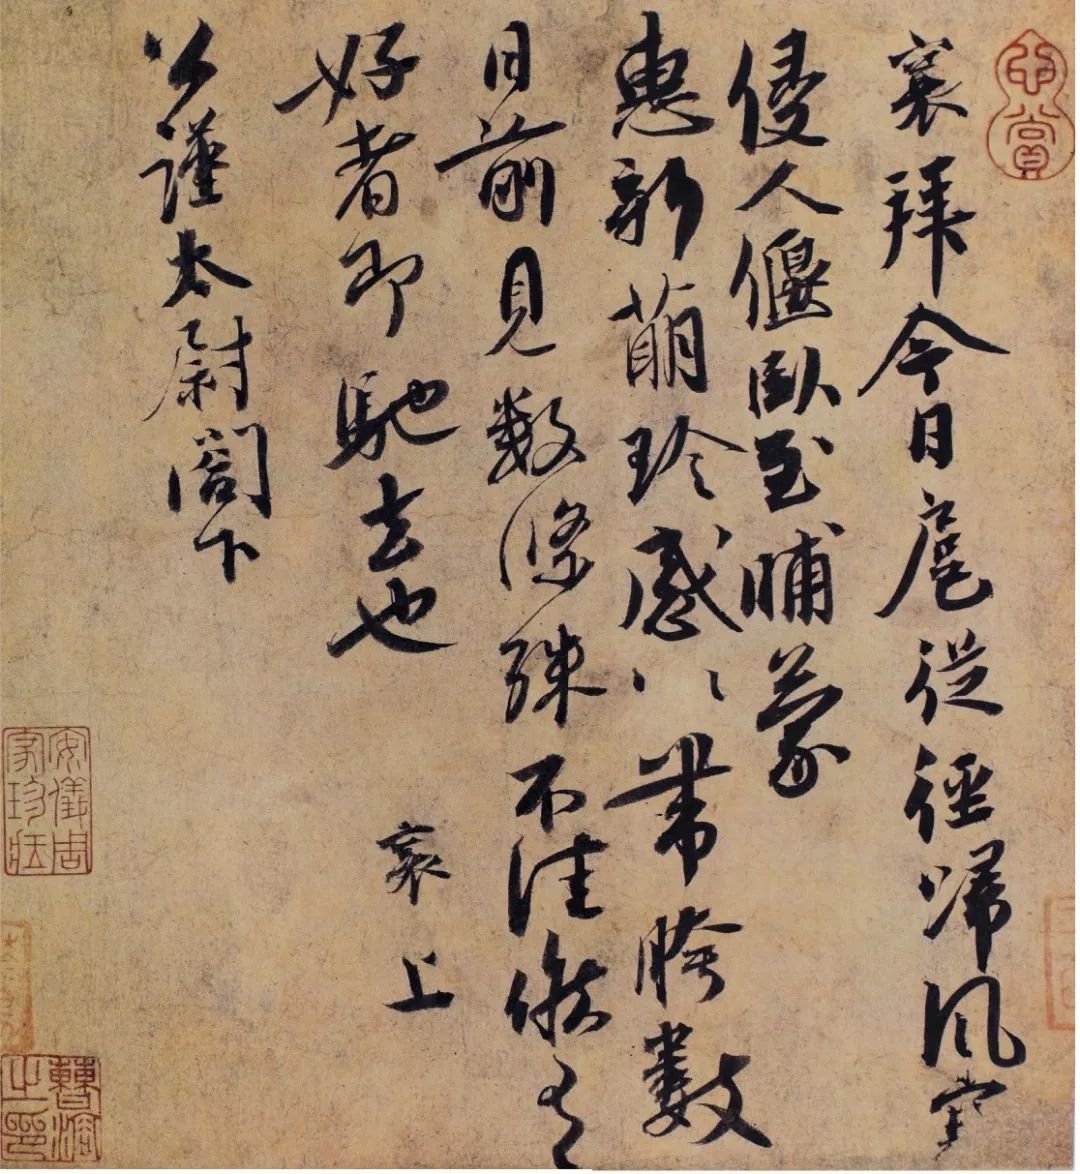 襄拜今日扈從徑歸風寒
侵人偃臥至晡蒙
惠新萌珍感〻帶胯數
日前見数條殊不佳候有
好者即馳去也 襄上
公謹太尉閣下
安儀周家珍藏